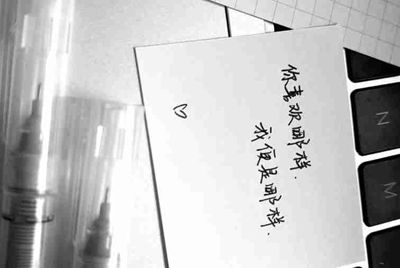 你喜欢哪样.
我便是哪样.
N
M